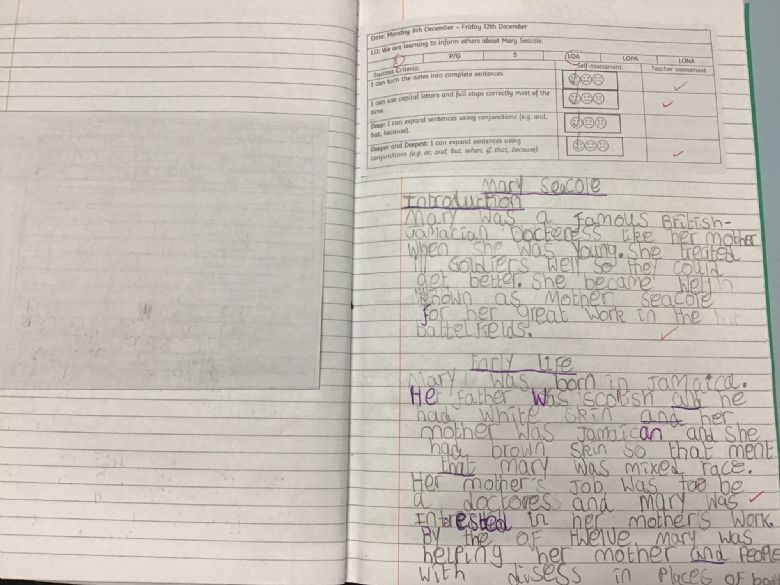 Date: Monday 8th December – Friday 12th December
LO: We are learning to inform others about Mary Seacole.
I P/G S LOA LOPA LONA
Success Criteria: Self-assessment Teacher assessment
I can turn the notes into complete sentences.
I can use capital letters and full stops correctly most of the
time.
Deep: I can expand sentences using conjunctions (e.g. and,
but, because).
Deeper and Deepest: I can expand sentences using
conjunctions (e.g. or, and, but, when, if, that, because).
Mary Seacole
Introduction
Mary was a famous British-
Jamaican Docteress like her mother
when she was young. she treated
ill soldiers well so they could
get better. she became well
known as Mother Seacole
for her great work in the
battelfields.
Early life
Mary was born in Jamaica.
Her father was scotish and he
had white skin and her
mother was Jamaican and she
had brown skin so that ment
that mary was mixed race.
Her mother's job was too be
a doctores and mary was
interested in her mother's work.
By the of twelve mary was
helping her mother and people
with disess in places of